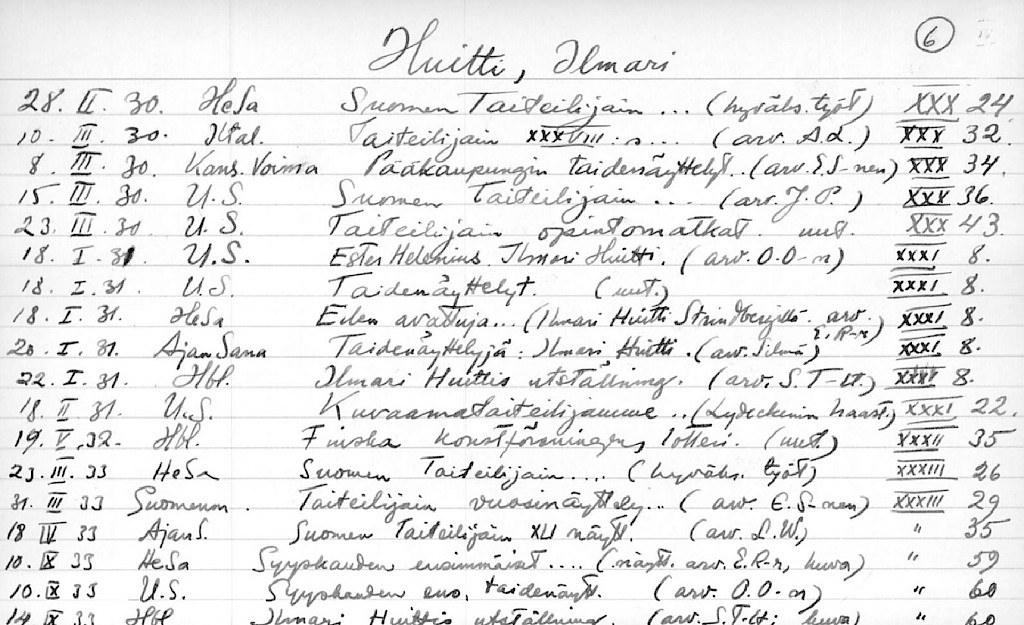 6 IV
Huitti, Ilmari
28. II. 30. HeSa Suomen Taiteilijain ... (hyväks. työt) XXX 24
10. III. 30. Iltal. Taiteilijain XXXVIII:s... (arv. A.L.) XXX 32.
8. III. 30 Kans. Voima Pääkaupungin taidenäyttelyt.. (arv. E.S-nen) XXX 34.
15. III. 30. U.S. Suomen Taiteilijain ... (arv. J.P.) XXX 36.
23. III. 30 U.S. Taiteilijain opintomatkat. uut. XXX 43.
18. I. 31 U.S. Ester Helenius. Ilmari Huitti. (arv. O.O-n) XXXI 8.
18. I. 31. U.S. Taidenäyttelyt. (uut.) XXXI 8.
18. I. 31. HeSa Eilen avattuja... (Ilmari Huitti Strindbergillä. arv. E.R-r) XXXI 8.
20. I. 31. Ajan Sana Taidenäyttelyjä: Ilmari Huitti. (arv. Silmä) XXXI 8.
22. I. 31. Hbl. Ilmari Huittis utställning. (arv. S.T-lt.) XXXI 8.
18. II. 31. U.S. Kuvaamataiteilijamme .. (Lydeckenin haast.) XXXI 22.
19. V. 32. Hbl. Finska konstföreningens lotteri. (uut.) XXXII 35
23. III. 33 HeSa Suomen Taiteilijain .... (hyväks. työt) XXXIII 26
31. III 33 Suomenm. Taiteilijain vuosinäyttely... (arv. E.S-nen) XXXIII 29
18 IV 33 Ajan S. Suomen Taiteilijain XLI näytt. (arv. L.W.) " 35
10. IX 33 HeSa Syyskauden ensimmäiset .... (näytt. arv. E.R-r, kuva) " 59
10. X 33 U.S. Syyskauden ens. taidenäytt. (arv. O.O-n) " 60
14. IX 33 Hbl Ilmari Huittis utställning. (arv. S.T-lt; kuva) " 60